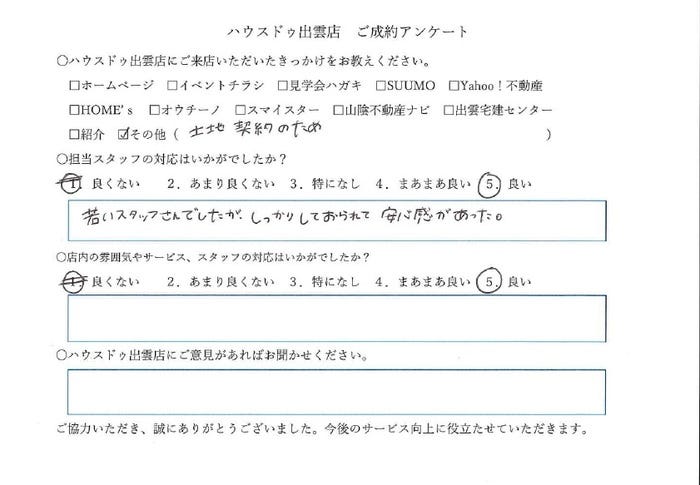 ハウスドゥ出雲店　ご成約アンケート
○ハウスドゥ出雲店にご来店いただいたきっかけをお教えください。
□ホームページ　□イベントチラシ　□見学会ハガキ　□SUUMO　□Yahoo！不動産
□HOME's　□オウチーノ　□スマイスター　□山陰不動産ナビ　□出雲宅建センター
□紹介　☑その他（ 土地 契約のため ）
○担当スタッフの対応はいかがでしたか？
1. 良くない　2．あまり良くない　3．特になし　4．まあまあ良い　5．良い
若いスタッフさんでしたが、しっかりしておられて 安心感があった。
○店内の雰囲気やサービス、スタッフの対応はいかがでしたか？
1. 良くない　2．あまり良くない　3．特になし　4．まあまあ良い　5．良い
○ハウスドゥ出雲店にご意見があればお聞かせください。
ご協力いただき、誠にありがとうございました。今後のサービス向上に役立たせていただきます。